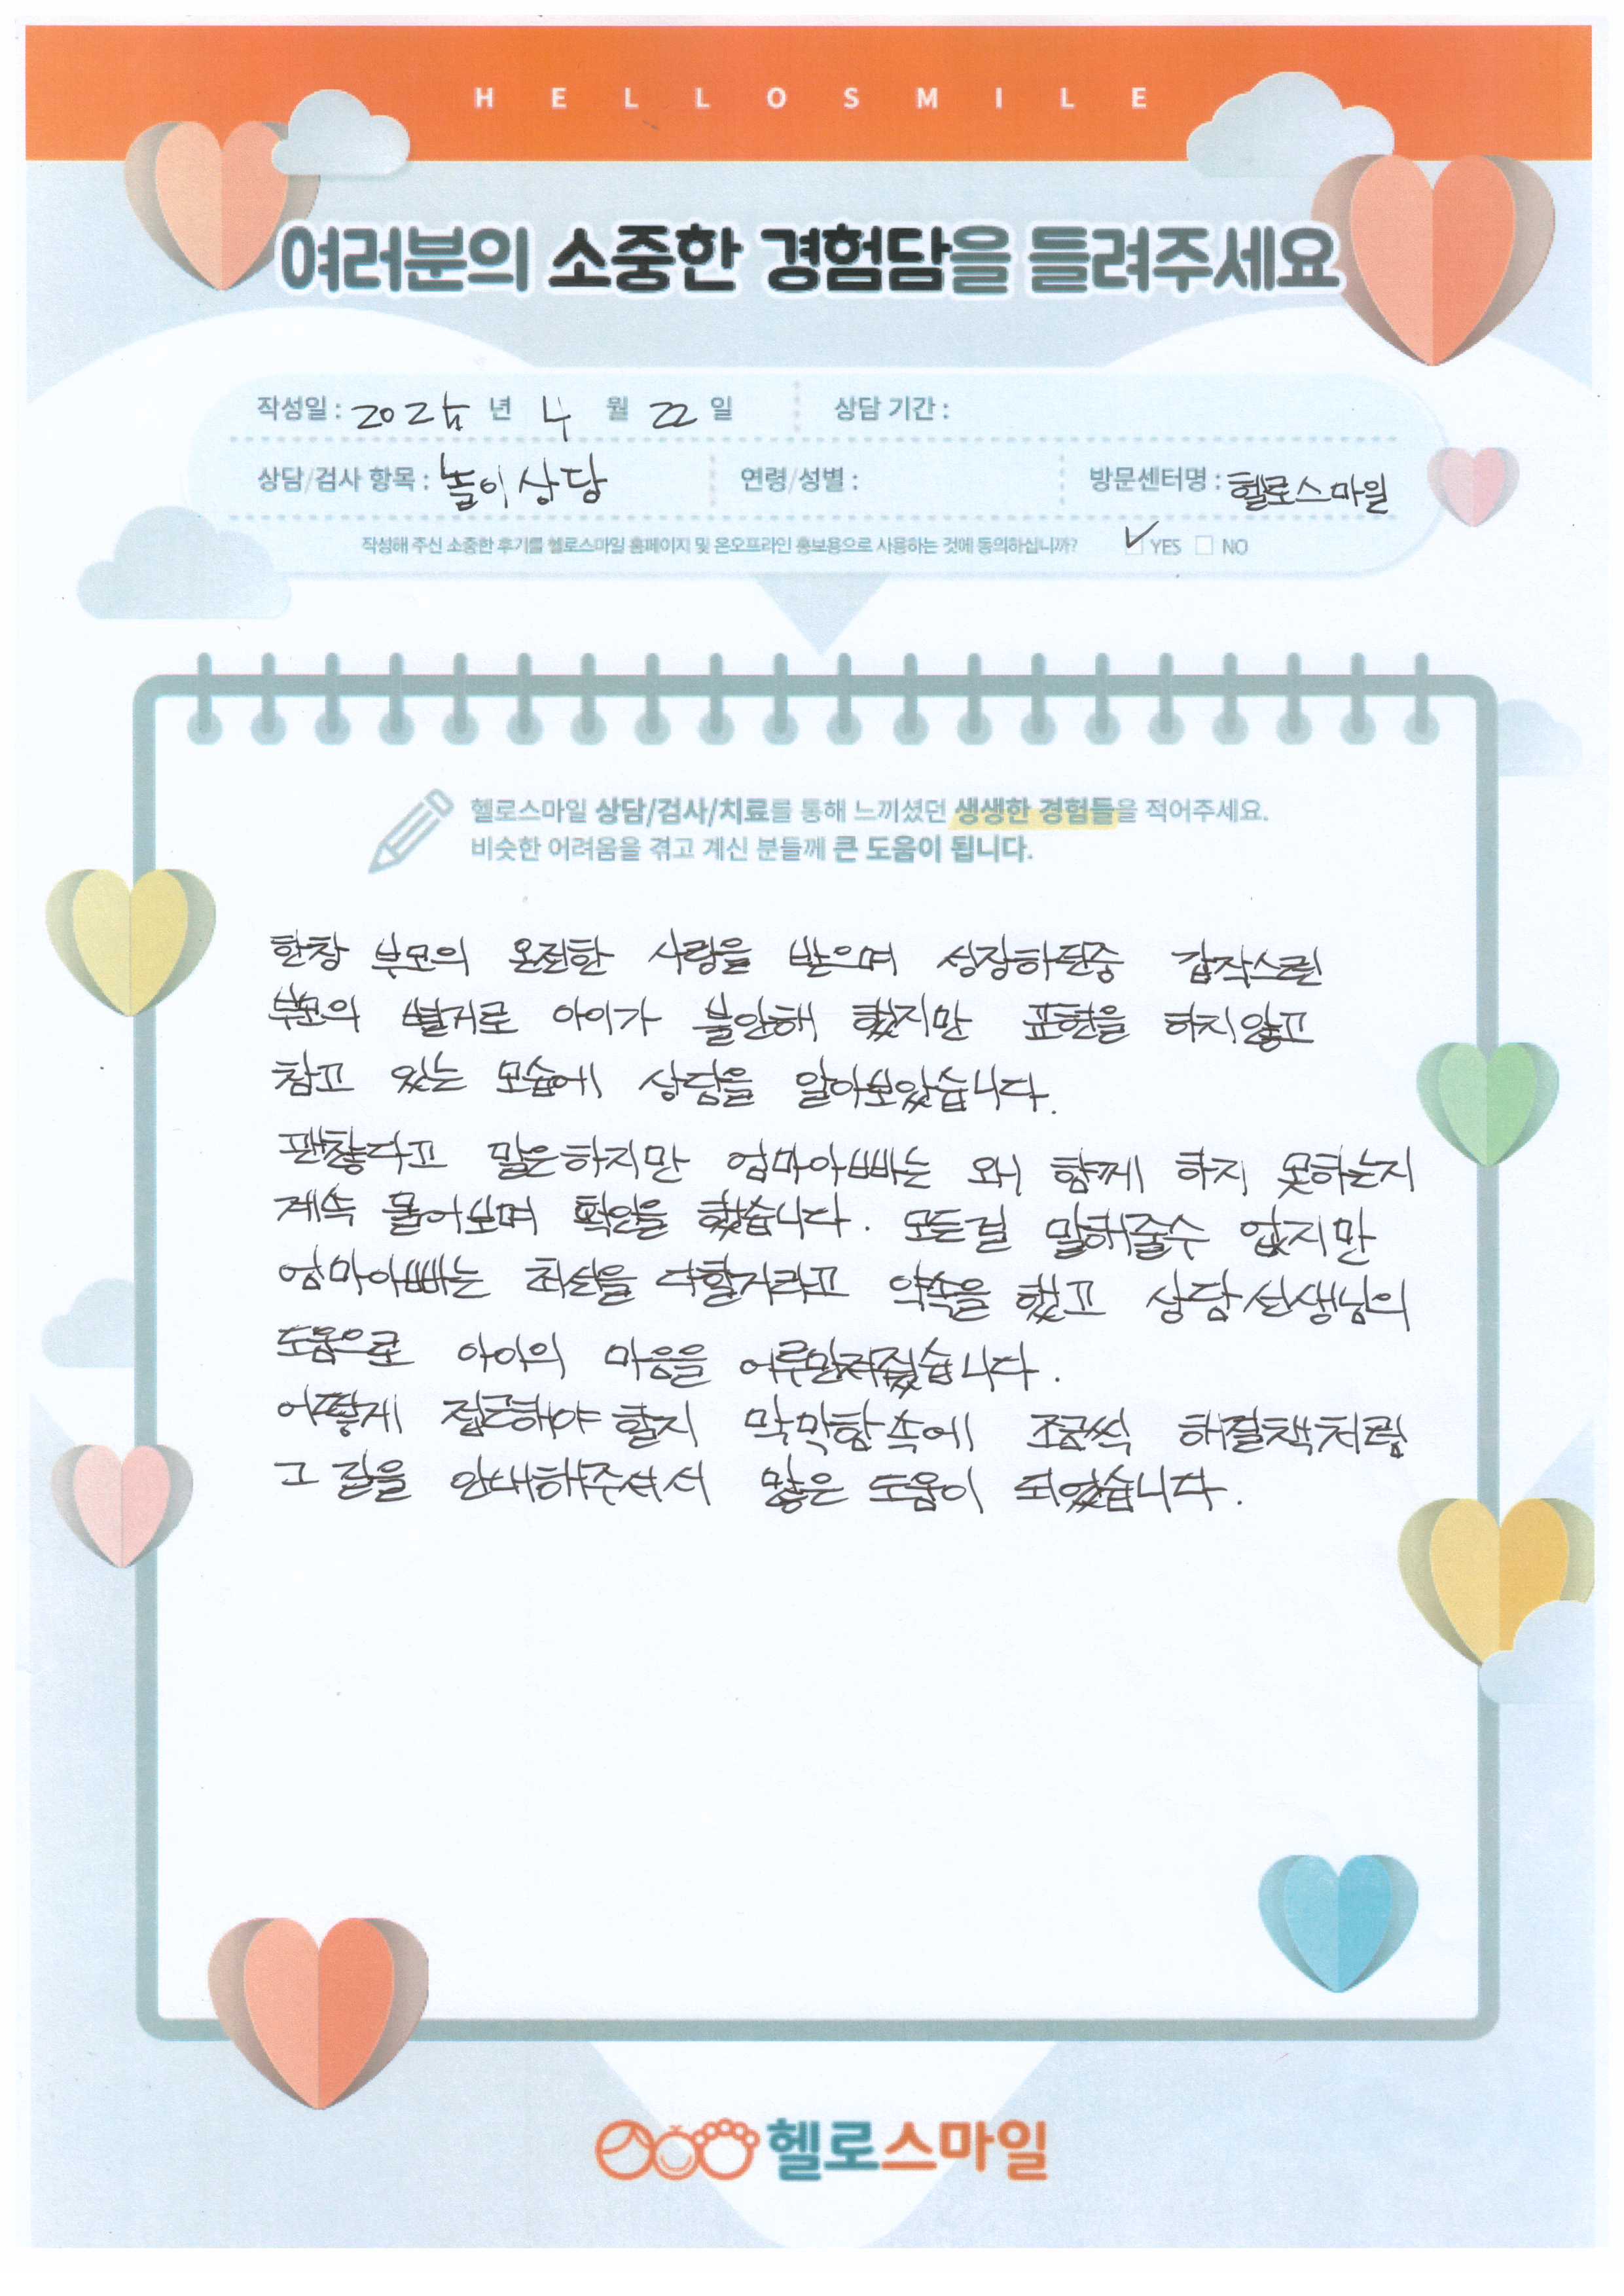 HELLOSMILE
여러분의 소중한 경험담을 들려주세요
작성일 : 년 4 월 22 일 상담 기간 :
상담/검사 항목 : 놀이상담 연령/성별 : 방문센터명 : 헬로스마일
작성해 주신 소중한 후기를 헬로스마일 홈페이지 및 온오프라인 홍보용으로 사용하는 것에 동의하십니까? YES NO
헬로스마일 상담/검사/치료를 통해 느끼셨던 생생한 경험들을 적어주세요.
비슷한 어려움을 겪고 계신 분들께 큰 도움이 됩니다.
한창 부모의 온전한 사랑을 받으며 성장하던중 갑작스런
부모의 별거로 아이가 불안해 했지만 표현을 하지않고
참고 있는 모습에 상담을 알아보았습니다.
괜찮다고 말은하지만 엄마아빠는 왜 함께 하지 못하는지
계속 물어보며 확인을 했습니다. 모든걸 말해줄수 없지만
엄마아빠는 최선을 다할거라고 약속을 했고 상담선생님의
도움으로 아이의 마음을 어루만져줬습니다.
어떻게 접근해야 할지 막막함속에 조금씩 해결책처럼
그 길을 안내해주셔서 많은 도움이 되었습니다.
헬로스마일